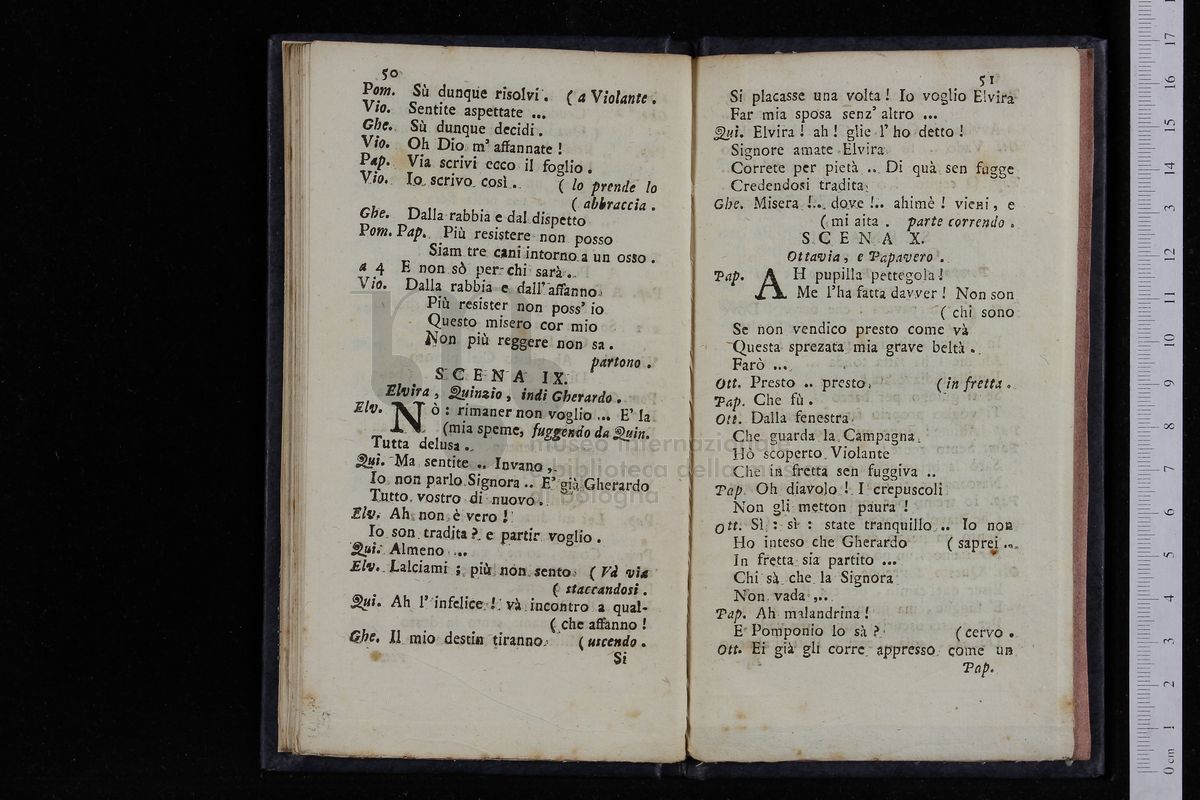 50
Pom. Sù dunque risolvi. (a Violante.
Vio. Sentite aspettate ...
Ghe. Sù dunque decidi.
Vio. Oh Dio m' affannate!
Pap. Via scrivi ecco il foglio.
Vio. Io scrivo così.. (lo prende lo
(abbraccia.
Ghe. Dalla rabbia e dal dispetto
Pom. Pap. Più resistere non posso
Siam tre cani intorno a un osso.
a 4 E non sò per chi sarà..
Vio. Dalla rabbia e dall' affanno
Più resister non poss' io
Questo misero cor mio
Non più reggere non sa.
partono.
SCENA IX.
Elvira, Quinzio, indi Gherardo.
Elv. Nò: rimaner non voglio ... E' la
(mia speme, fuggendo da Quin.
Tutta delusa..
Qui. Ma sentite .. Invano,
Io non parlo Signora .. E' già Gherardo
Tutto vostro di nuovo.
Elv. Ah non è vero!
Io son tradita? e partir voglio.
Qui. Almeno ...
Elv. Lalciami; più non sento (Và via
(staccandosi.
Qui. Ah l' infelice! và incontro a qual-
(che affanno!
Ghe. Il mio destin tiranno (uscendo.
Si
51
Si placasse una volta! Io voglio Elvira
Far mia sposa senz' altro ...
Qui. Elvira! ah! glie l' ho detto!
Signore amate Elvira
Correte per pietà .. Di quà sen fugge
Credendosi tradita
Ghe. Misera!.. dove!.. ahimè! vieni, e
(mi aita. parte correndo.
SCENA X.
Ottavia, e Papavero.
Pap. AH pupilla pettegola!
Me l'ha fatta davver! Non son
(chi sono
Se non vendico presto come và
Questa sprezata mia grave beltà.
Farò ...
Ott. Presto .. presto, (in fretta.
Pap. Che fù.
Ott. Dalla fenestra
Che guarda la Campagna
Hò scoperto Violante
Che in fretta sen fuggiva ..
Pap. Oh diavolo! I crepuscoli
Non gli metton paura!
Ott. Sì: sì: state tranquillo .. Io non
Ho inteso che Gherardo (saprei ...
In fretta sia partito ...
Chi sà che la Signora
Non vada ...
Pap. Ah malandrina!
E Pomponio lo sà? (cervo.
Ott. Ei già gli corre appresso come un
Pap.
museo internazionale
e biblioteca della musica
di bologna